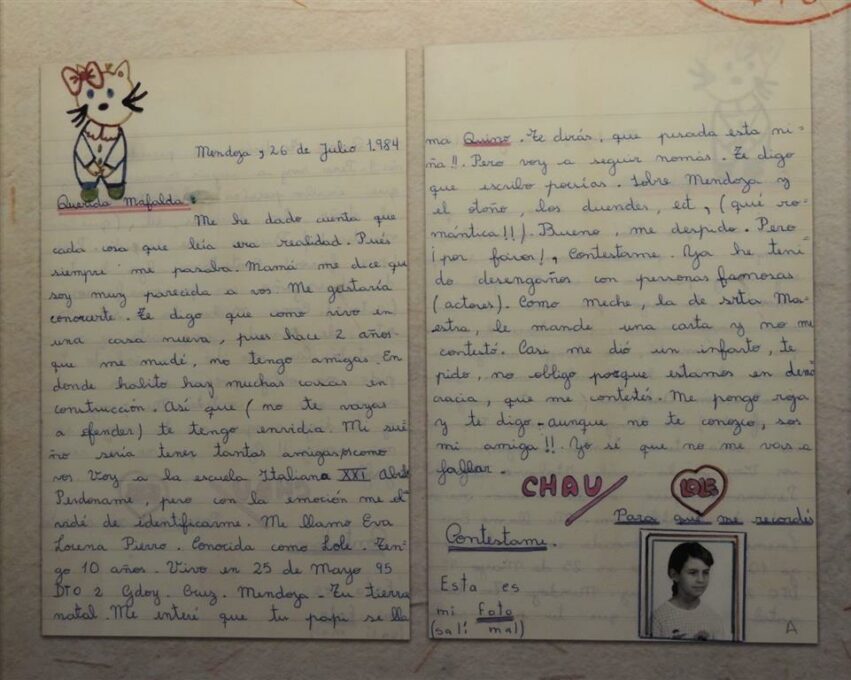 Mendoza, 26 de Julio 1.984
Querida Mafalda:
Me he dado cuenta que
cada cosa que leía era realidad. Pués
siempre me pasaba. Mamá me dice que
soy muy parecida a vos. Me gustaría
conocerte. Te digo que como vivo en
una casa nueva, pues hace 2 años
que me mudé, no tengo amigas. En
donde habito hay muchas casas en
construcción. Así que (no te vayas
a ofender) te tengo envidia. Mi sue-
ño sería tener tantas amigas como
vos. Voy a la escuela Italiana XXI Abril
Perdoname, pero con la emoción me ol-
vidé de identificarme. Me llamo Eva
Lorena Pierro. Conocida como Lole. Ten-
go 10 años. Vivo en 25 de Mayo 95
DTO 2 Gdoy. Cruz. Mendoza - Tu tierra
natal. Me interé que tu papi se lla
ma Quino. Te dirás, que pesada esta ni-
ña!!. Pero voy a seguir nomás. Te digo
que escribo poesías. Sobre Mendoza y
el otoño, los duendes, ect, (qué ro-
mántica!!!). Bueno, me despido. Pero
¡por favor!, Contestame. Ya he teni-
do desengaños con personas famosas
(actores). Como meche, la de srta Ma-
estra, le mande una carta y no me
contestó. Casi me dió un infarto, te
pido, no obligo porque estamos en demo
cracia, que me contestés. Me pongo roja
y te digo - aunque no te conozco, sos
mi amiga!!. Yo sé que no me vas a
fallar.
CHAU
LOLE
Para que me recordés
Contestame.
Esta es
mi foto
(salí mal)
A